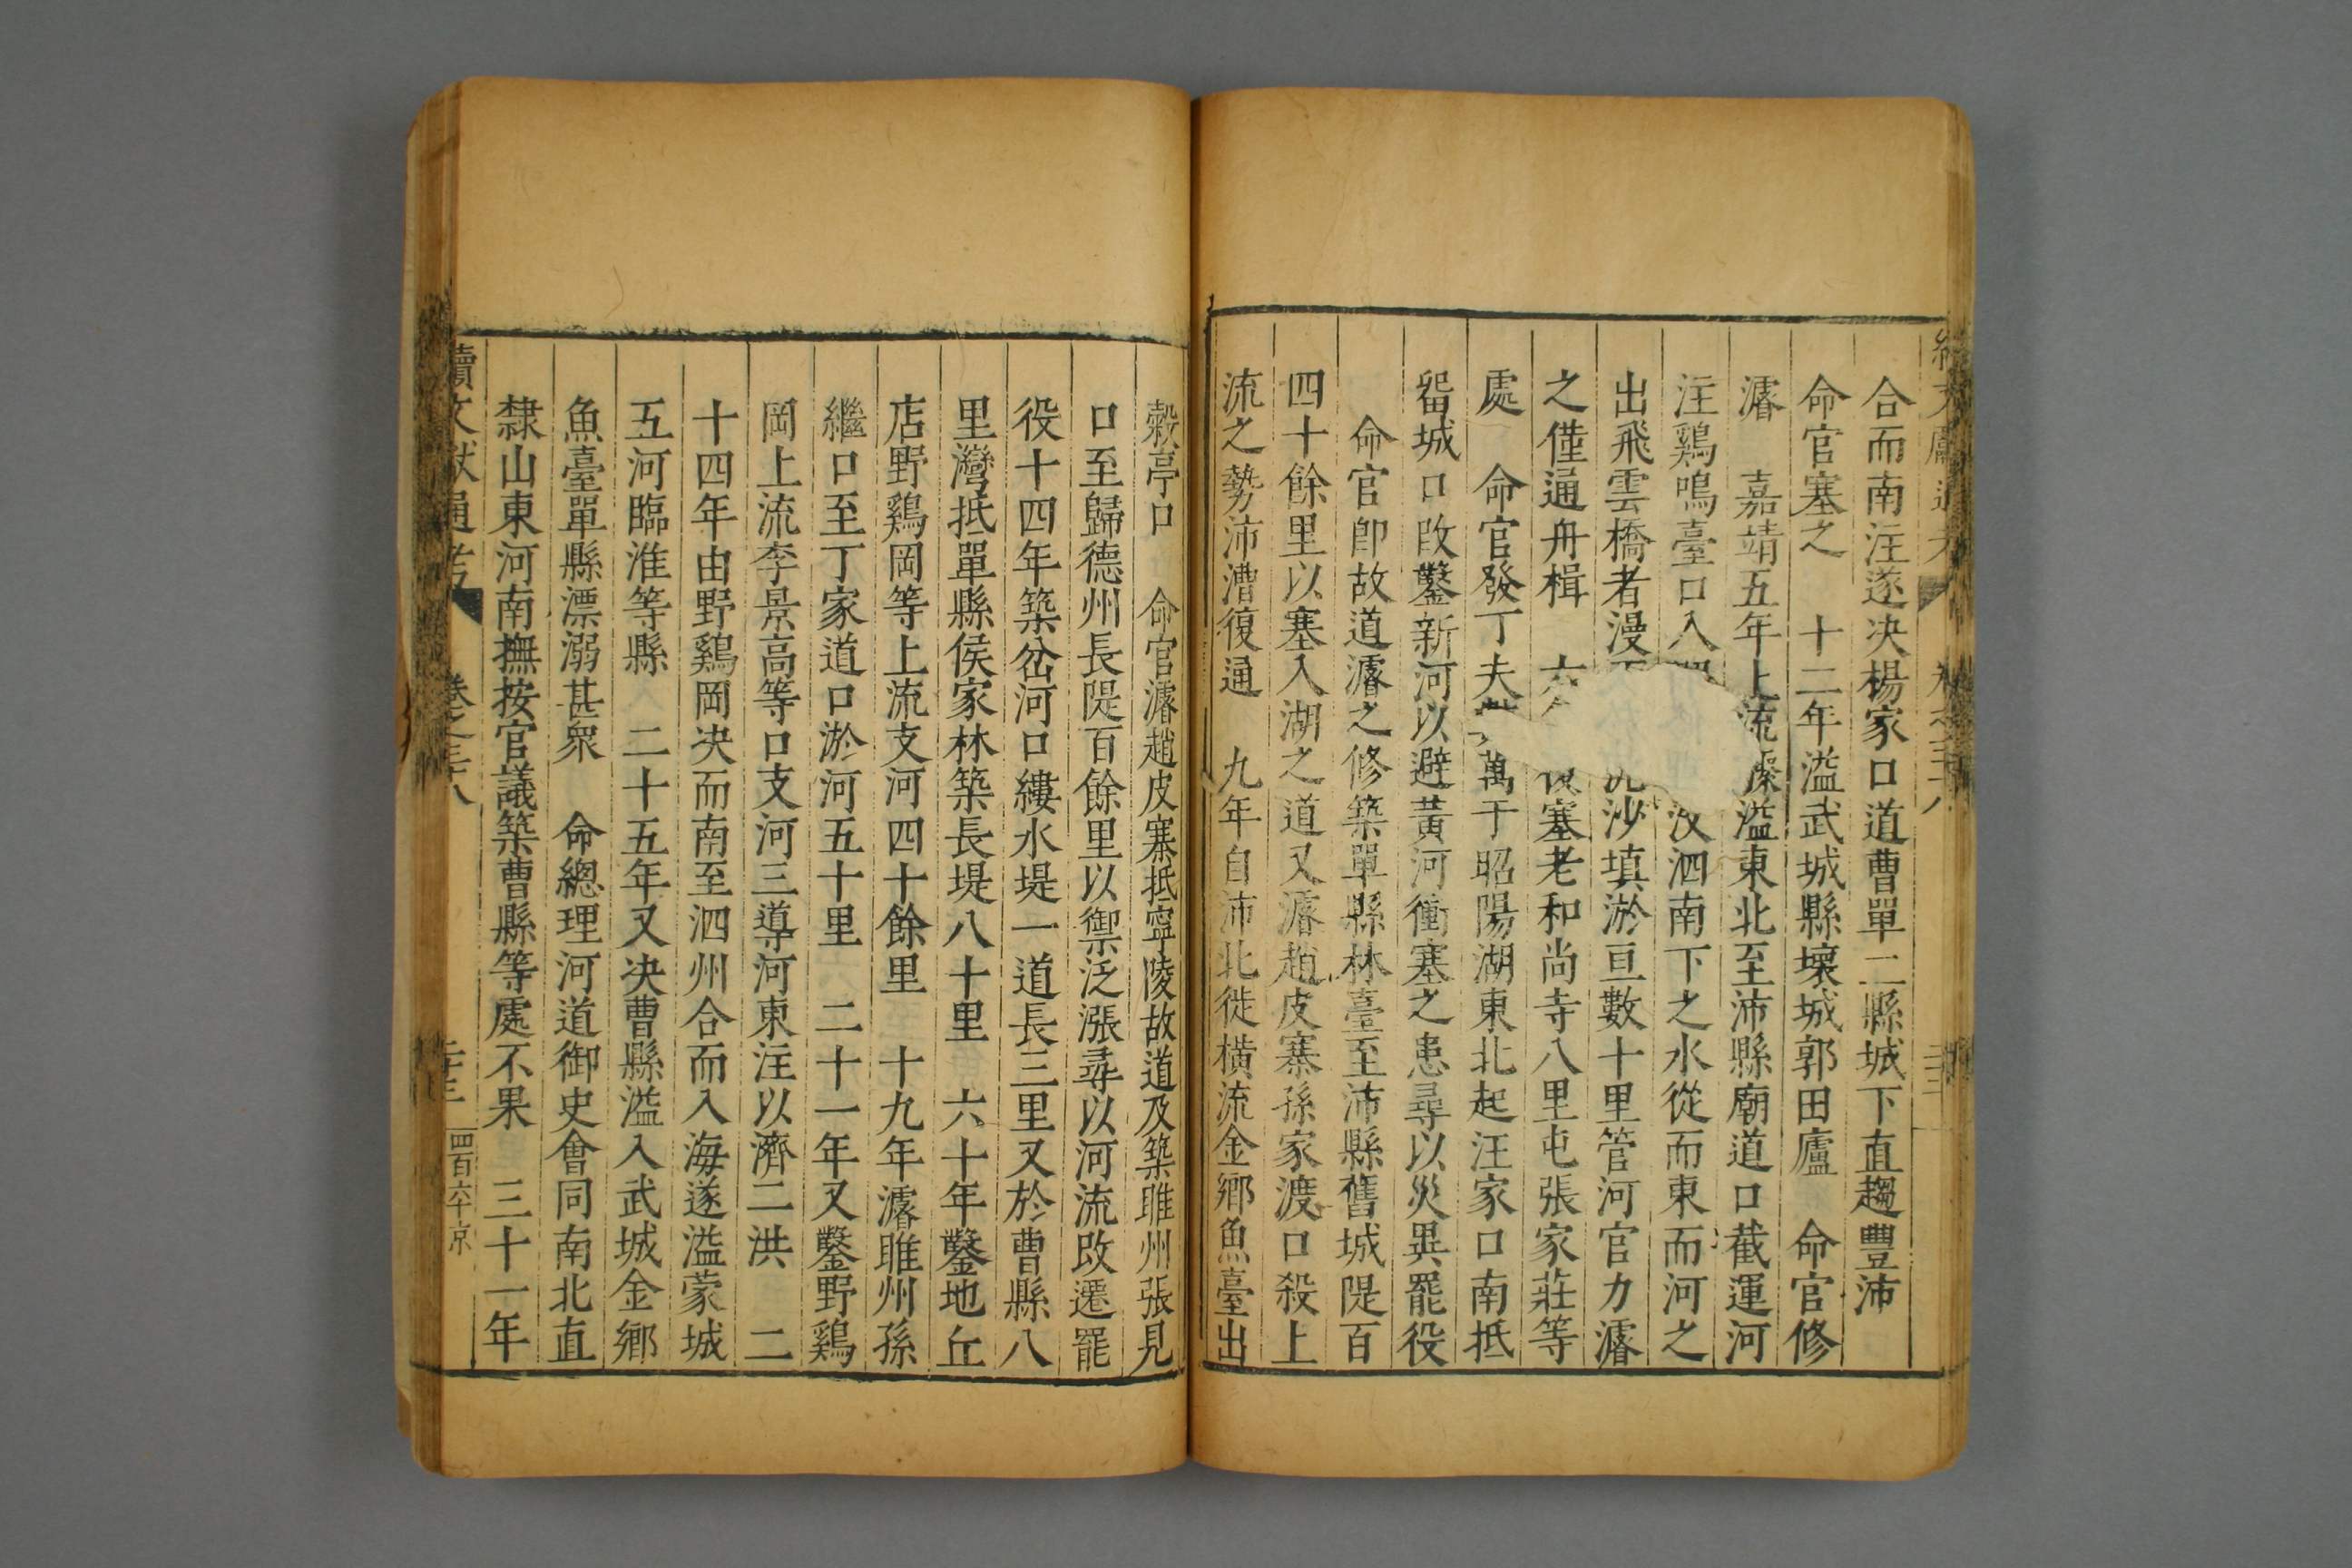 合而南注遂决楊家口道曹單二縣城下直趨豐沛
命官塞之　十二年溢武城縣壞城郭田廬　命官修
濬　嘉靖五年上流驟溢東北至沛縣廟道口截運河
注鷄鳴臺口入汶泗南下之水從而東而河之
出飛雲橋者漫沙填淤亘數十里管河官力濬
之僅通舟楫　六塞老和尚寺八里屯張家莊等
處　命官發丁夫萬于昭陽湖東北起汪家口南抵
畱城口改鑿新河以避黃河衝塞之患尋以災異罷役
命官卽故道濬之修築單縣林臺至沛縣舊城隄百
四十餘里以塞入湖之道又濬趙皮寨孫家渡口殺上
流之勢沛漕復通　九年自沛北徙橫流金鄉魚臺出
穀亭口　命官濬趙皮寨抵寧陵故道及築睢州張見
口至歸德州長隄百餘里以禦泛漲尋以河流改遷罷
役十四年築岔河口縷水堤一道長三里又於曹縣八
里灣抵單縣侯家林築長堤八十里　六十年鑿地丘
店野鷄岡等上流支河四十餘里　十九年濬睢州孫
繼口至丁家道口淤河五十里　二十一年又鑿野鷄
岡上流李景高等口支河三導河東注以濟二洪　二
十四年由野鷄岡决而南至泗州合而入海遂溢蒙城
五河臨淮等縣　二十五年又决曹縣溢入武城金鄉
魚臺單縣漂溺甚衆　命總理河道御史會同南北直
隸山東河南撫按官議築曹縣等處不果　三十一年
續文獻通考　卷之三十八